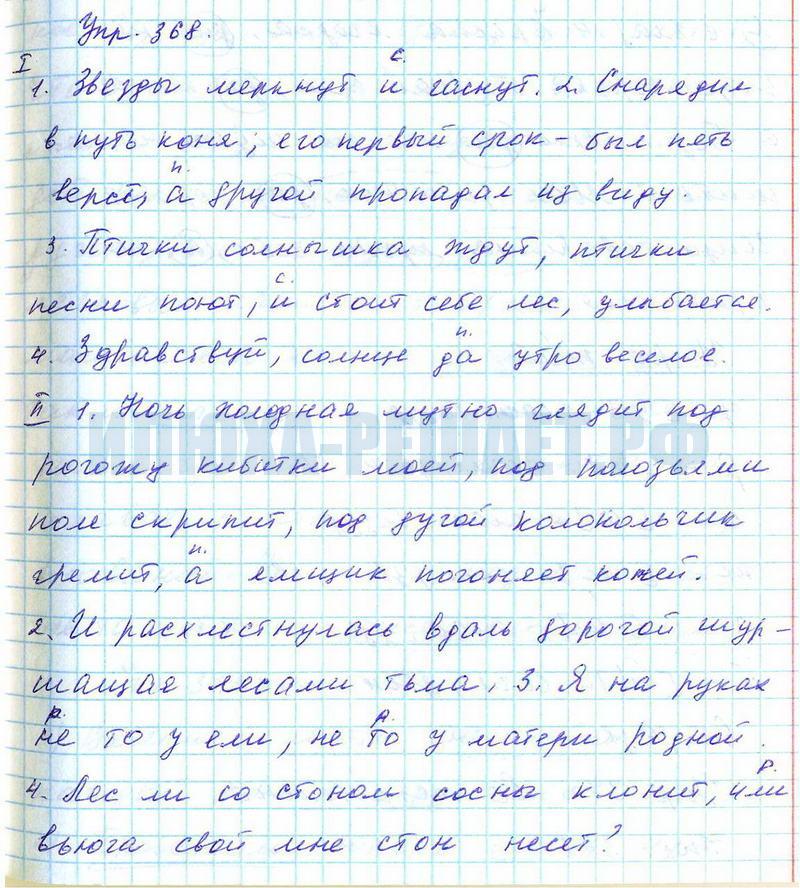 Упр. 368.
I
с.
1. Звезды меркнут и гаснут. 2. Снарядил
в путь коня; его первый срок – был пять
п.
верст, а другой пропадал из виду.
3. Птички солнышка ждут, птички
с.
песни поют, и стоит себе лес, улыбается.
п.
4. Здравствуй, солнце да утро веселое.
II 1. Ночь холодная мутно глядит под
ИЛЮХА-РЕШАЕТ.РФ
рогожу кибитки моей, под полозьями
поле скрипит, под дугой колокольчик
п.
гремит, а ямщик погоняет коней.
2. И расхлестнулась вдаль дорогой шур-
шащая лесами тьма. 3. Я на руках
р. р.
не то у ели, не то у матери родной.
р.
4. Лес ли со стоном сосны клонит, или
вьюга свой мне стон несет?